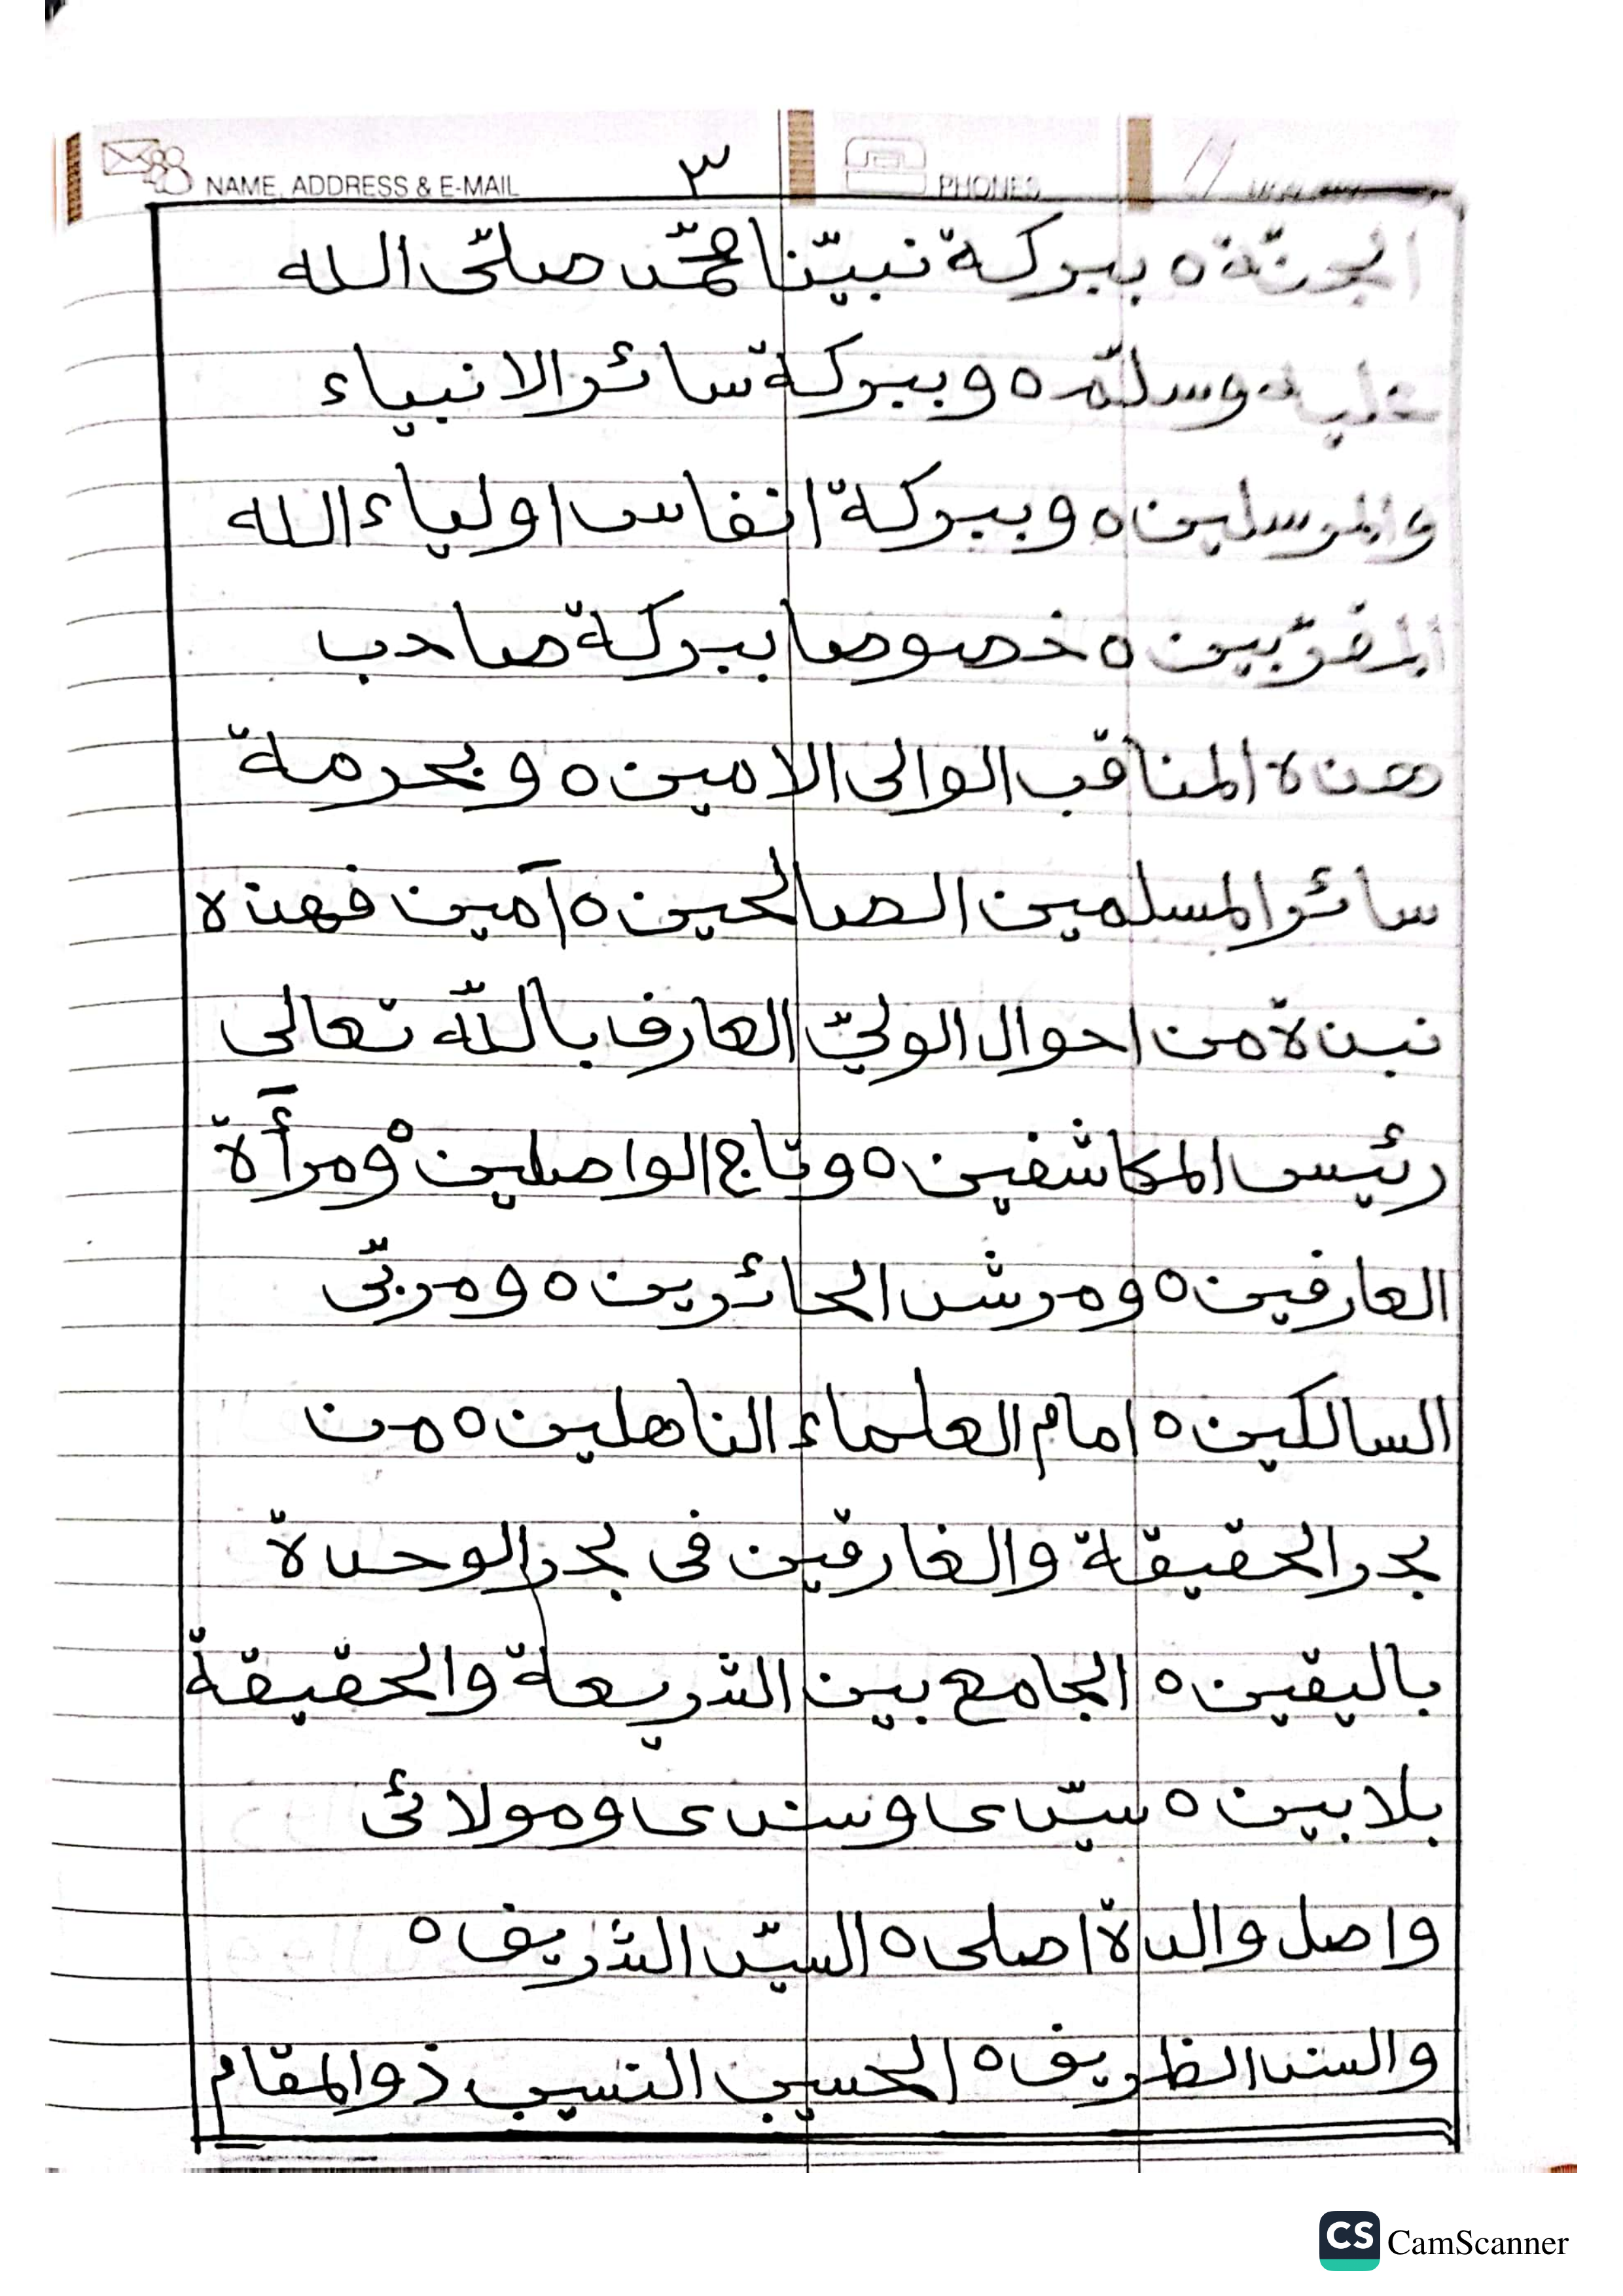 NAME, ADDRESS & E-MAIL ٣ PHONES
الجنّة ٥ ببركة نبيّنا محمّد صلّى الله
عليه وسلّم ٥ وببركة سائر الانبياء
والمرسلين ٥ وببركة انفاس اولياء الله
المقرّبين ٥ خصوصا ببركة صاحب
هذه المناقب الوالى الامين ٥ وبحرمة
سائر المسلمين الصالحين ٥ آمين فهذه
نبذة من احوال الوليّ العارف باللّه تعالى
رئيس المكاشفين ٥ وتاج الواصلين ٥ ومرأة
العارفين ٥ ومرشد الحائرين ٥ ومربّى
السالكين ٥ امام العلماء الناهلين ٥ من
بحر الحقيقة والغارقين فى بحر الوحدة
باليقين ٥ الجامع بين الشريعة والحقيقة
بلا بين ٥ سيّدى وسندى ومولائى
واصل والدة اصلى ٥ السيّد الشريف ٥
والسند الظريف ٥ الحسيب النسيب ذو المقام
CS CamScanner